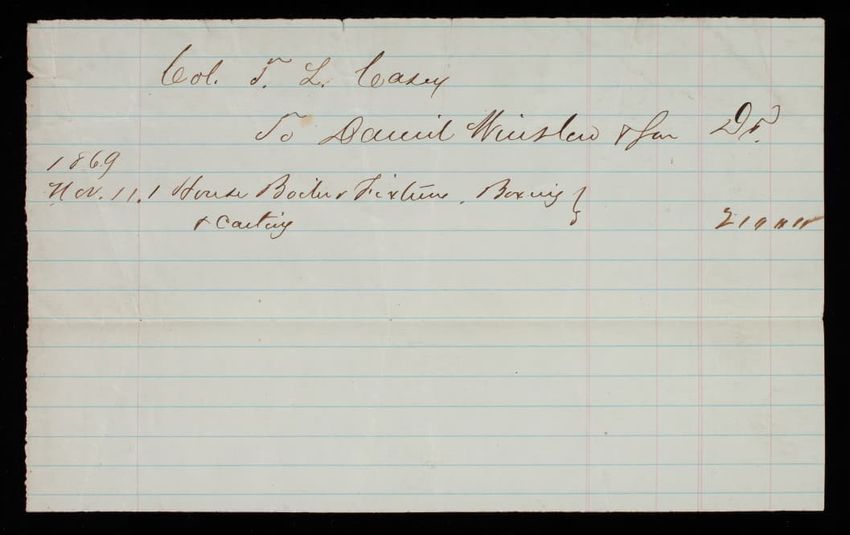 Col. T. L. Casey
To Daniel Winslow & Son Dr.
1869
Nov. 11. 1 House Boiler & Fixture. Boxing }
& Carting